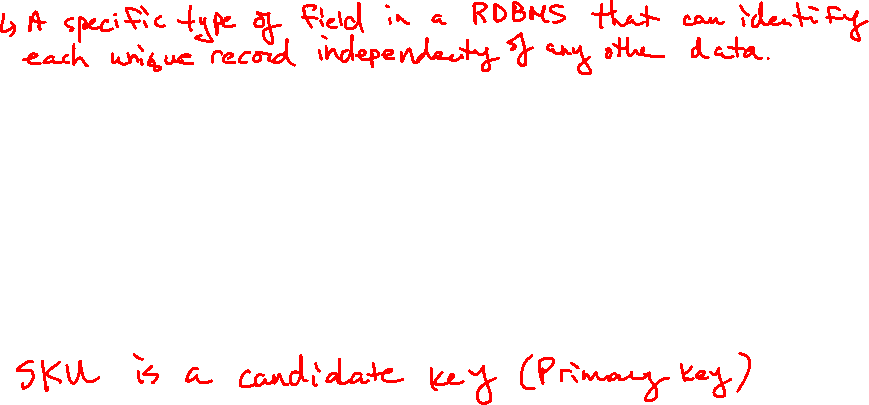 ↳ A specific type of field in a RDBMS that can identify
each unique record independently of any other data.
SKU is a candidate key (Primary key)